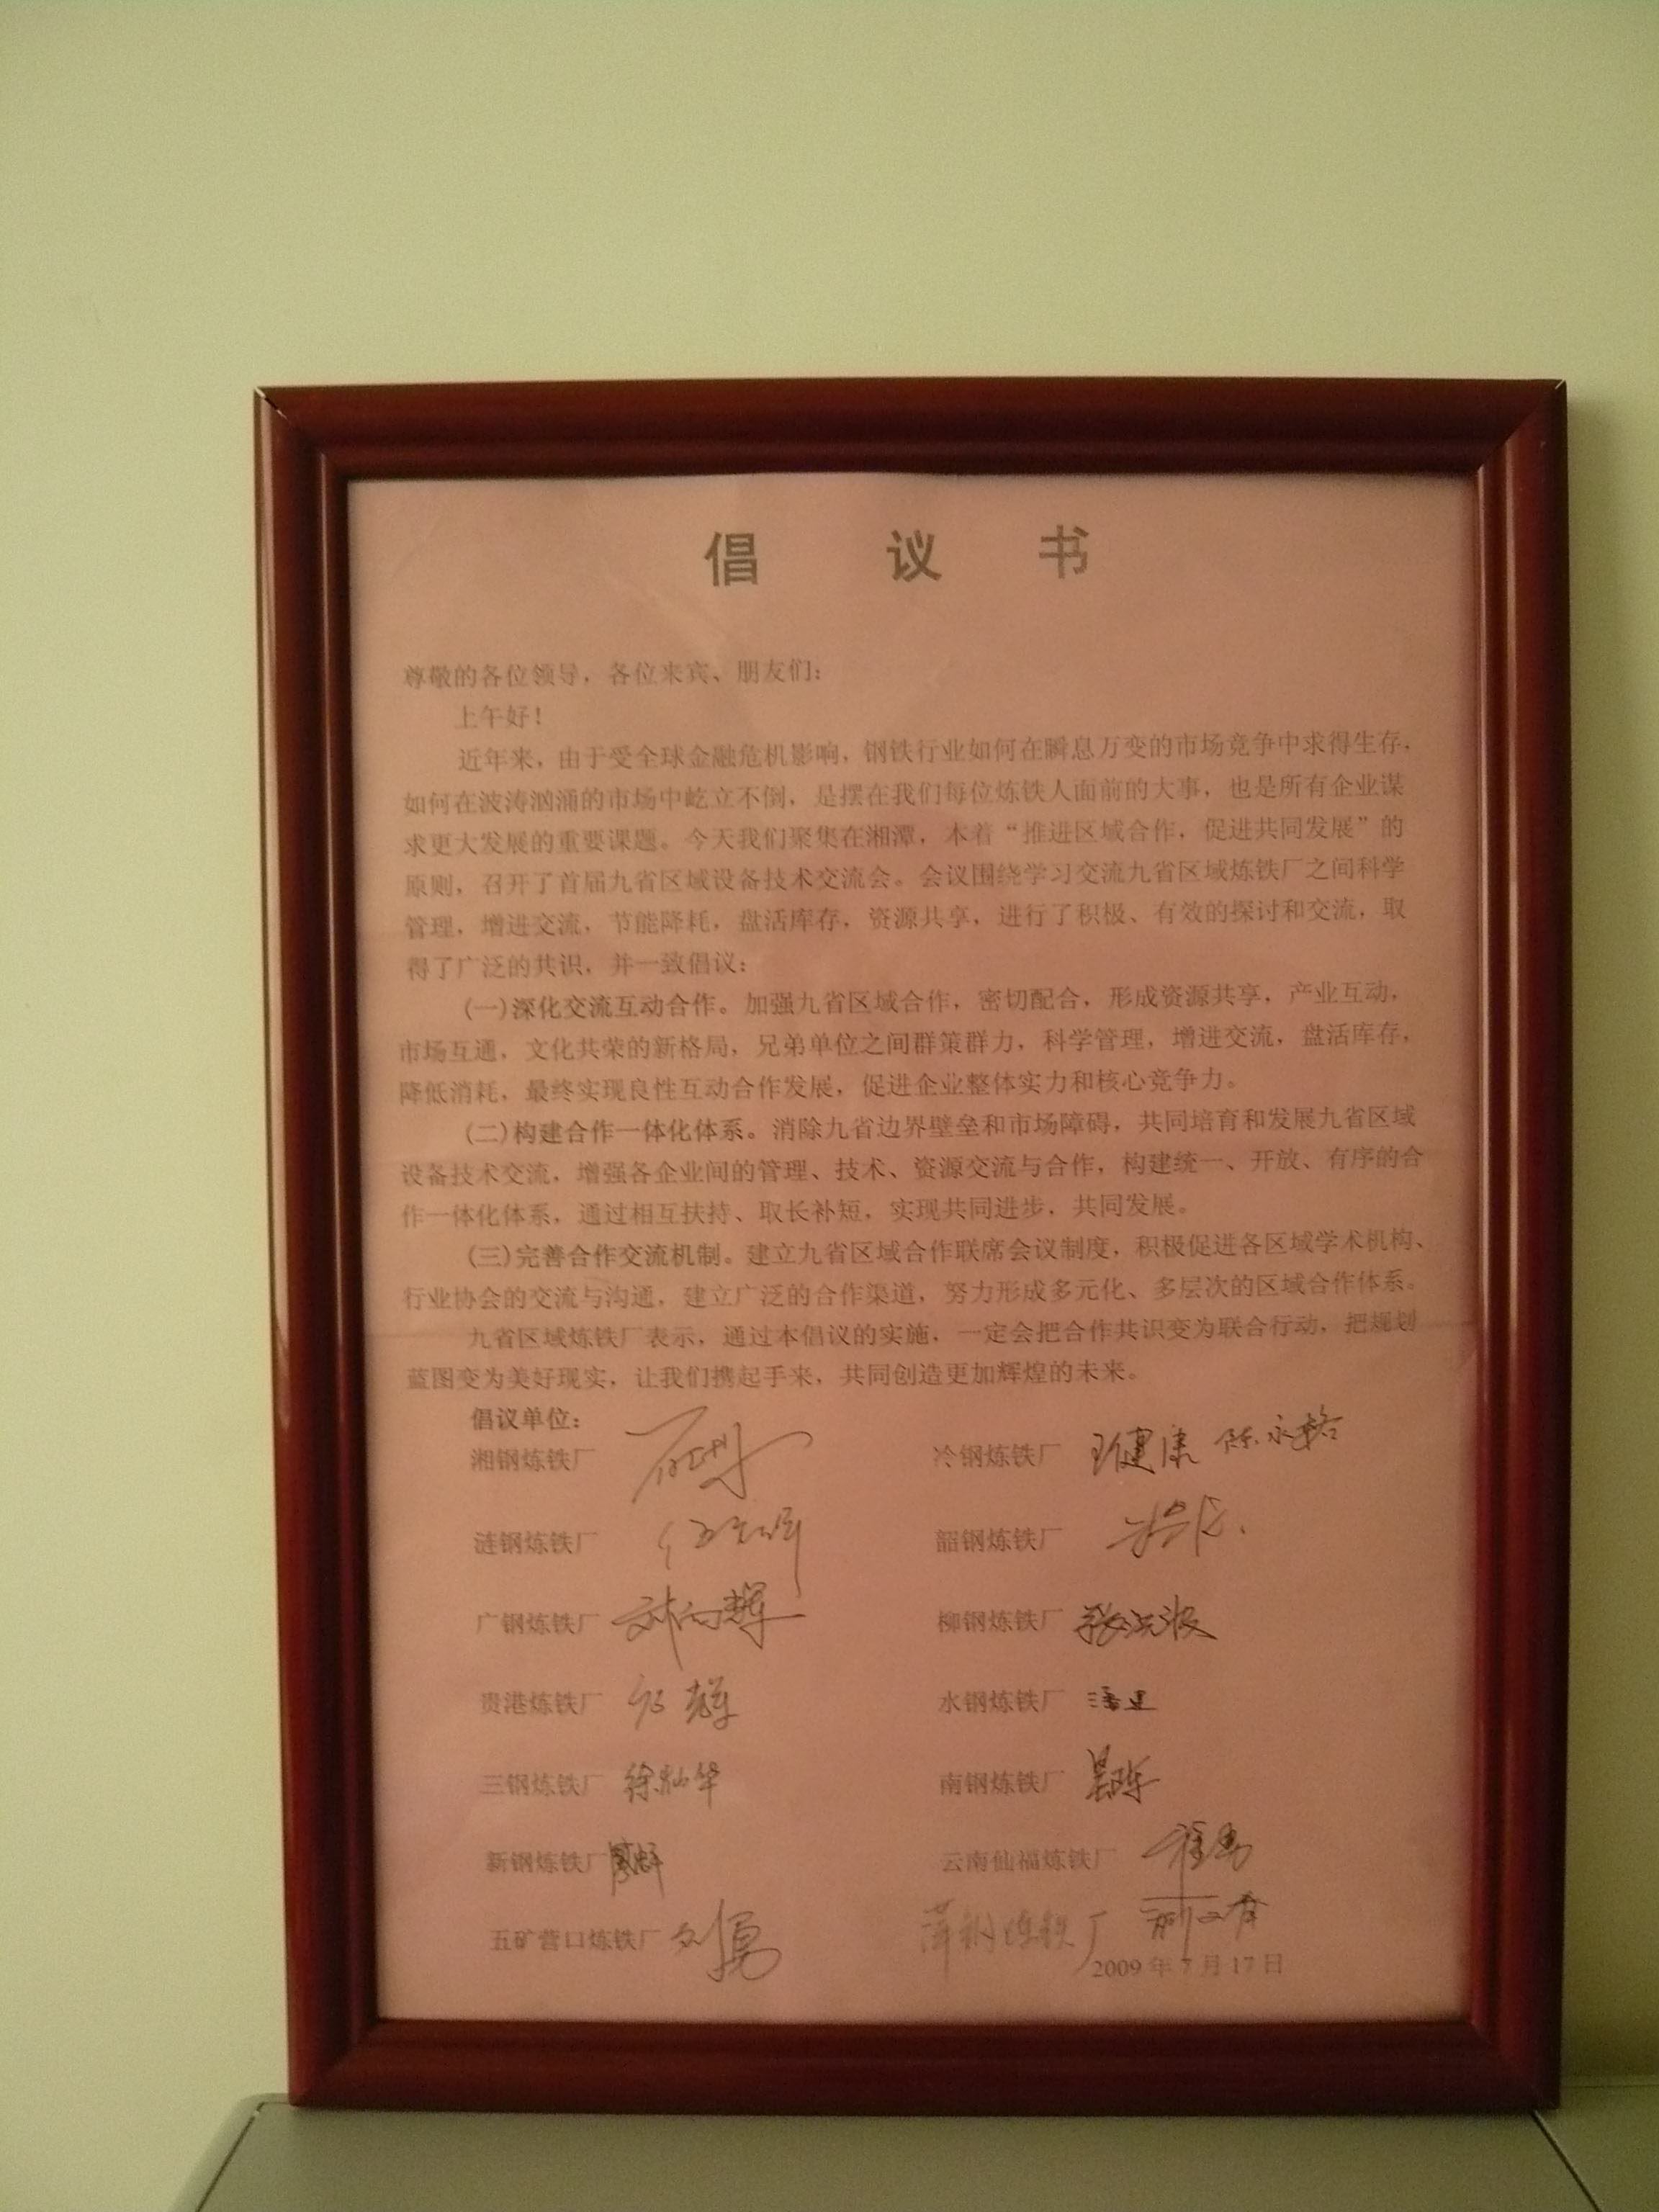 倡议书
尊敬的各位领导，各位来宾、朋友们：
上午好！
近年来，由于受全球金融危机影响，钢铁行业如何在瞬息万变的市场竞争中求得生存，
如何在波涛汹涌的市场中屹立不倒，是摆在我们每位炼铁人面前的大事，也是所有企业谋
求更大发展的重要课题。今天我们聚集在湘潭，本着“推进区域合作，促进共同发展”的
原则，召开了首届九省区域设备技术交流会。会议围绕学习交流九省区域炼铁厂之间科学
管理，增进交流，节能降耗，盘活库存，资源共享，进行了积极、有效的探讨和交流，取
得了广泛的共识，并一致倡议：
(一)深化交流互动合作。加强九省区域合作，密切配合，形成资源共享，产业互动，
市场互通，文化共荣的新格局，兄弟单位之间群策群力，科学管理，增进交流，盘活库存，
降低消耗，最终实现良性互动合作发展，促进企业整体实力和核心竞争力。
(二)构建合作一体化体系。消除九省边界壁垒和市场障碍，共同培育和发展九省区域
设备技术交流，增强各企业间的管理、技术、资源交流与合作，构建统一、开放、有序的合
作一体化体系，通过相互扶持、取长补短，实现共同进步，共同发展。
(三)完善合作交流机制。建立九省区域合作联席会议制度，积极促进各区域学术机构、
行业协会的交流与沟通，建立广泛的合作渠道，努力形成多元化、多层次的区域合作体系。
九省区域炼铁厂表示，通过本倡议的实施，一定会把合作共识变为联合行动，把规划
蓝图变为美好现实，让我们携起手来，共同创造更加辉煌的未来。
倡议单位：
湘钢炼铁厂 冷钢炼铁厂
涟钢炼铁厂 韶钢炼铁厂
广钢炼铁厂 柳钢炼铁厂
贵港炼铁厂 水钢炼铁厂
三钢炼铁厂 南钢炼铁厂
新钢炼铁厂 云南仙福炼铁厂
五矿营口炼铁厂 刘勇 萍钢炼铁厂
2009年7月17日